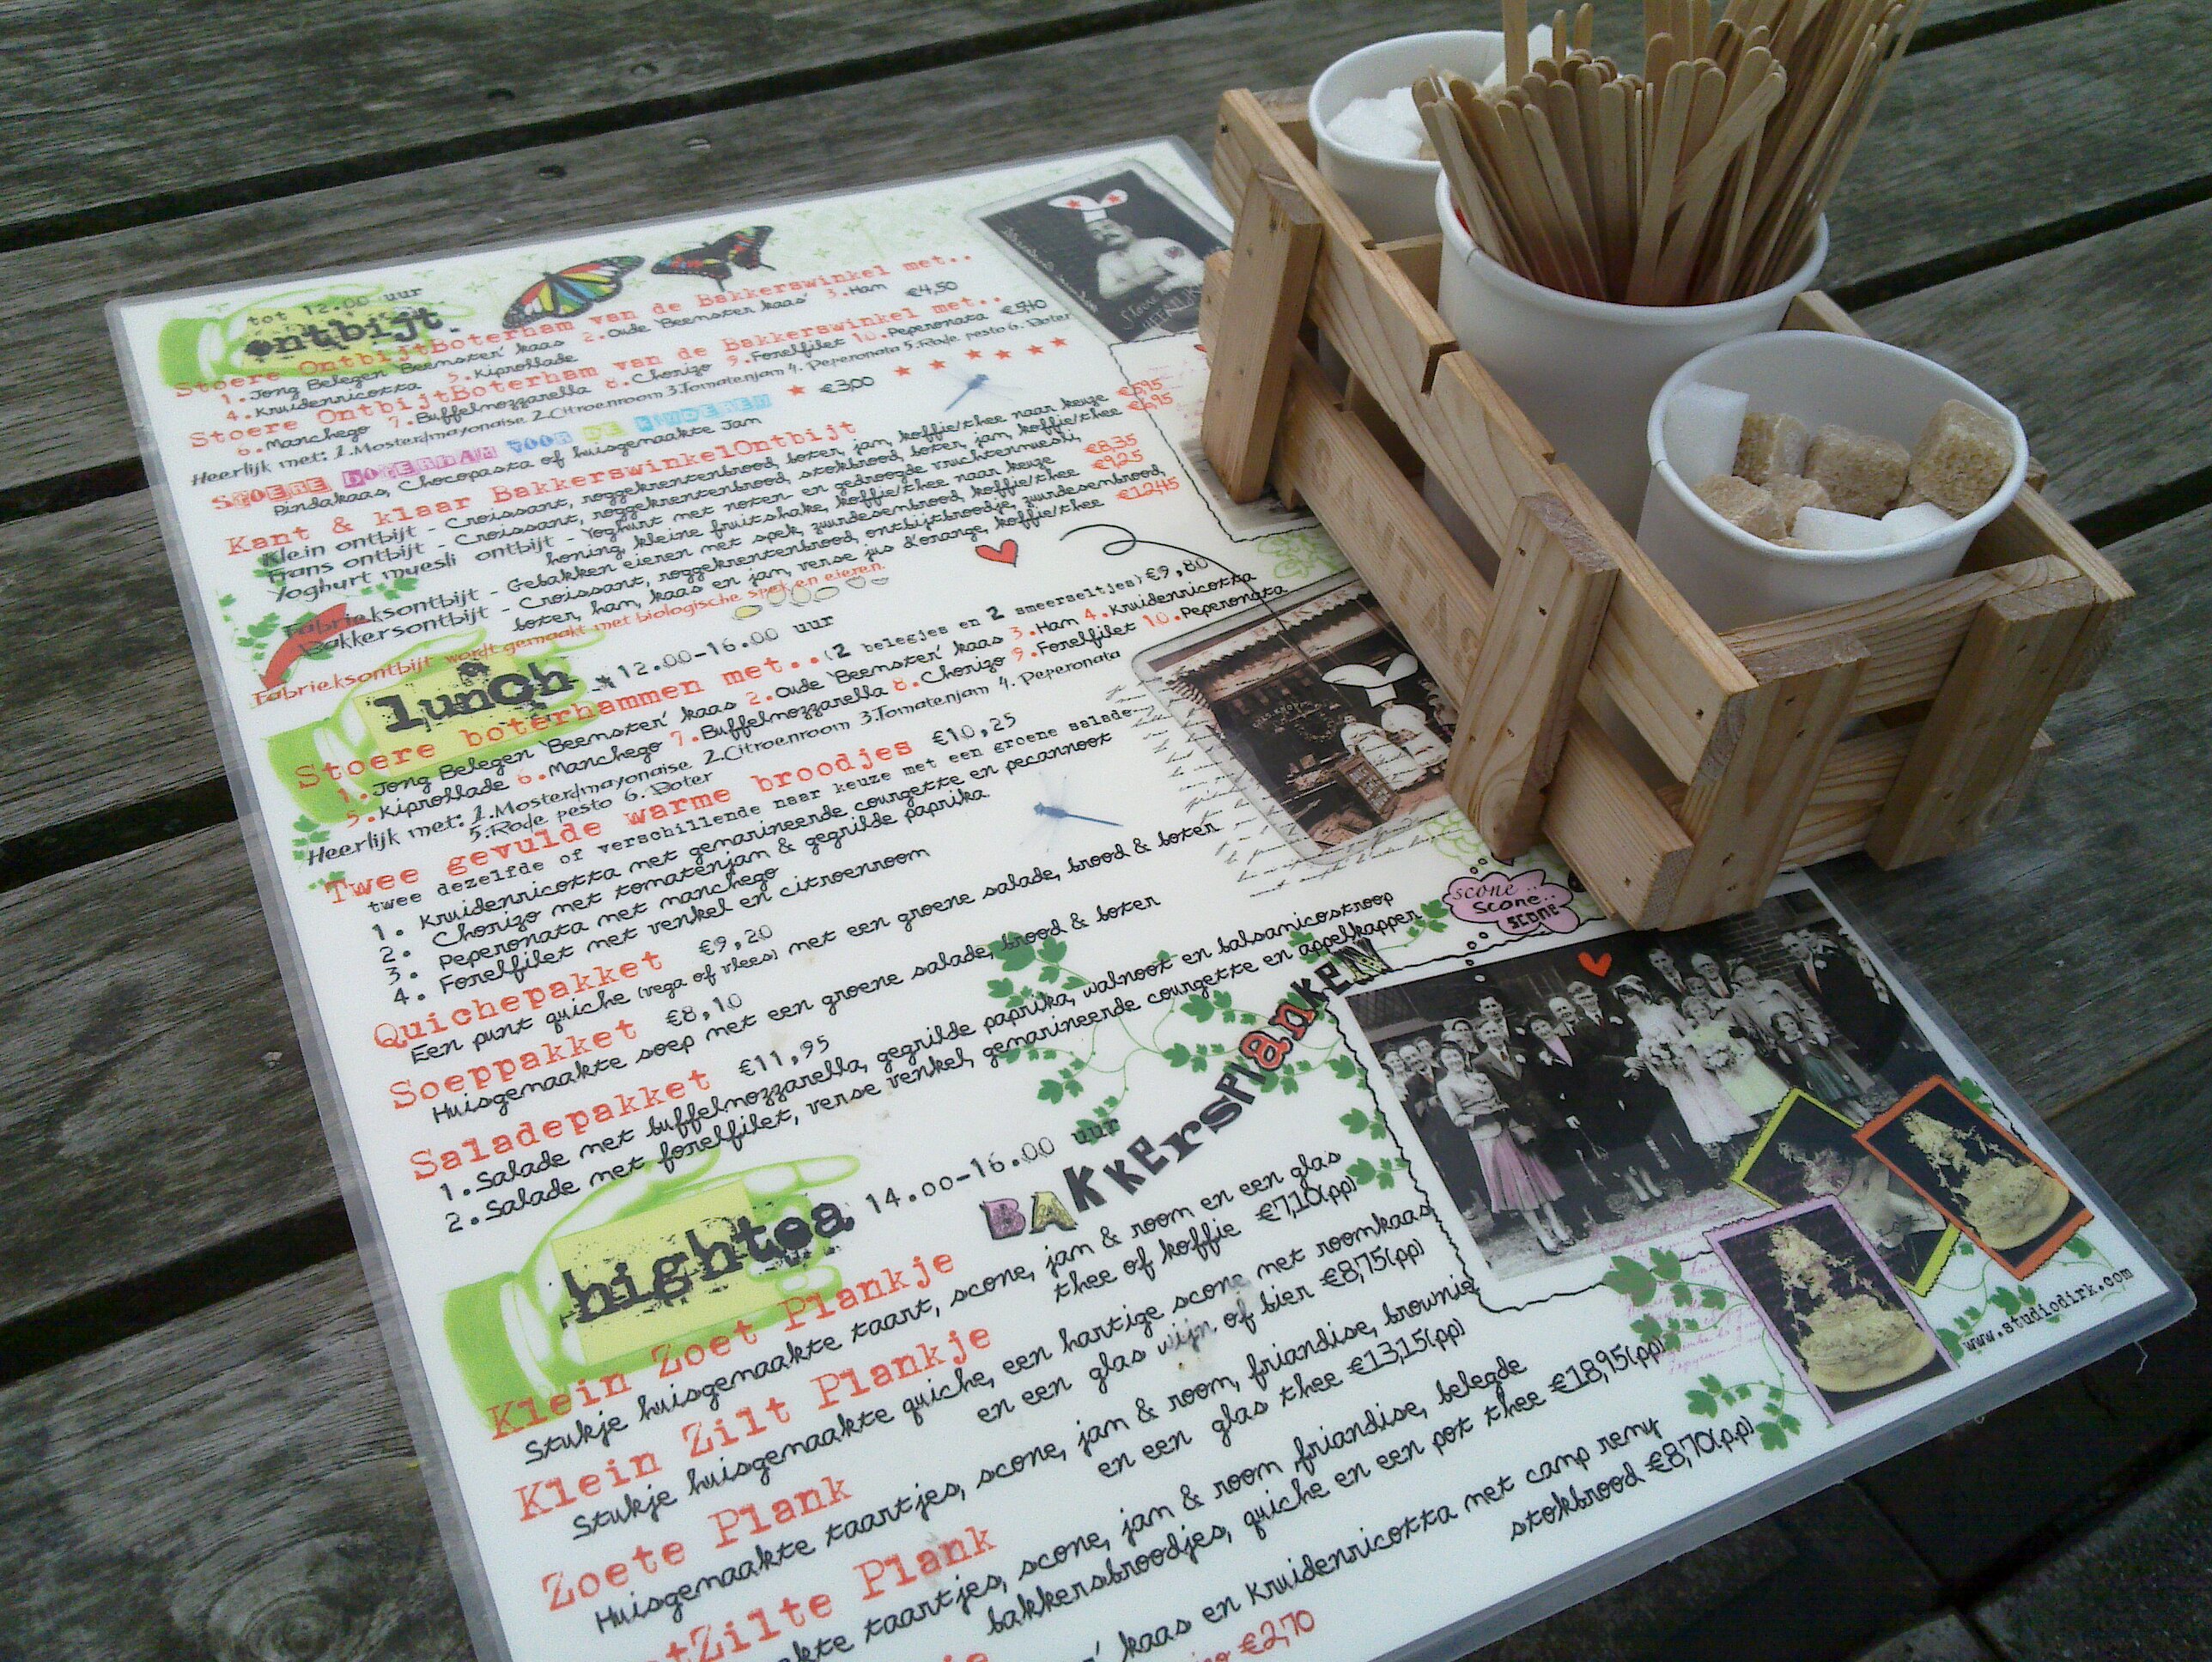 tot 12.00 uur
ontbijt
Stoere OntbijtBoterham van de Bakkerswinkel met..
1.Jong Belegen 'Beemster' kaas 2.Oude 'Beemster kaas' 3.Ham €4,50
4.Kruidenricotta 5.Kiprollade
Stoere OntbijtBoterham van de Bakkerswinkel met...
6.Manchego 7.Buffelmozzarella 8.Chorizo 9.Forelfilet 10.Peperonata €5,40
Heerlijk met: 1.Moster/mayonaise 2.Citroenroom 3.Tomatenjam 4.Peperonata 5.Rode pesto 6.Boter
STOERE BOTERHAM VOOR DE KINDEREN €3,00
Pindakaas, Chocopasta of huisgemaakte Jam
Kant & klaar BakkerswinkelOntbijt
Klein ontbijt - Croissant, roggekrentenbrood, boter, jam, koffie/thee naar keuze €5,95
Frans ontbijt - Croissant, roggekrentenbrood, stokbrood, boter, jam, koffie/thee €6,95
Yoghurt muesli ontbijt - Yoghurt met noten en gedroogde vruchtenmuesli,
honing, kleine fruitshake, koffie/thee naar keuze €8,35
Fabrieksontbijt - Gebakken eieren met spek, zuurdesembrood, koffie/thee €9,25
Bakkersontbijt - Croissant, roggekrentenbrood, ontbijtbroodje, zuurdesembrood,
boter, ham, kaas en jam, verse jus d'orange, koffie/thee €12,45
Fabrieksontbijt wordt gemaakt met biologische spek en eieren.
lunch 12.00-16.00 uur
Stoere boterhammen met..(2 belegjes en 2 smeerseltjes) €9,80
1.Jong Belegen 'Beemster' kaas 2.Oude 'Beemster' kaas 3.Ham 4.Kruidenricotta
5.Kiprollade 6.Manchego 7.Buffelmozzarella 8.Chorizo 9.Forelfilet 10.Peperonata
Heerlijk met: 1.Moster/mayonaise 2.Citroenroom 3.Tomatenjam 4.Peperonata
5.Rode pesto 6.Boter
Twee gevulde warme broodjes €10,25
twee dezelfde of verschillende naar keuze met een groene salade
1. Kruidenricotta met gemarineerde courgette en pecannoot
2. Chorizo met tomatenjam & gegrilde paprika
3. Peperonata met manchego
4. Forelfilet met venkel en citroenroom
Quichepakket €9,20
Een punt quiche (vega of vlees) met een groene salade, brood & boter
Soeppakket €8,10
Huisgemaakte soep met een groene salade, brood & boter
Saladepakket €11,95
1.Salade met buffelmozzarella, gegrilde paprika, walnoot en balsamicostroop
2.Salade met forelfilet, verse venkel, gemarineerde courgette en appelkapper
scone..
scone..
SCONE
hightea 14.00-16.00 uur
BAKKersPlanKeN
Klein Zoet Plankje
Stukje huisgemaakte taart, scone, jam & room en een glas
thee of koffie €7,10(pp)
Klein Zilt Plankje
Stukje huisgemaakte quiche, een hartige scone met roomkaas
en een glas wijn of bier €8,75(pp)
Zoete Plank
Huisgemaakte taartjes, scone, jam & room, friandise, brownie
en een glas thee €13,15(pp)
tZilte Plank
kte taartjes, scone, jam & room, friandise, belegde
bakkersbroodjes, quiche en een pot thee €18,95(pp)
je
' kaas en Kruidenricotta met camp remy
stokbrood €8,70(p.p)
€2,70
www.studiodirk.com